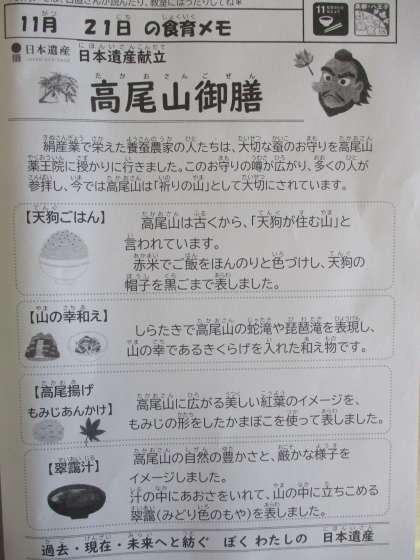 11月 21日 の食育メモ
日本遺産 日本遺産献立
高尾山御膳
絹産業で栄えた養蚕農家の人たちは、大切な蚕のお守りを高尾山
薬王院に授かりに行きました。このお守りの噂が広がり、多くの人が
参拝し、今では高尾山は「祈りの山」として大切にされています。
【天狗ごはん】
高尾山は古くから、「天狗が住む山」と
言われています。
赤米でご飯をほんのりと色づけし、天狗の
帽子を黒ごまで表しました。
【山の幸和え】
しらたきで高尾山の蛇滝や琵琶滝を表現し、
山の幸であるきくらげを入れた和え物です。
【高尾揚げ
もみじあんかけ】
高尾山に広がる美しい紅葉のイメージを、
もみじの形をしたかまぼこを使って表しました。
【翠靄汁】
高尾山の自然の豊かさと、厳かな様子を
イメージしました。
汁の中にあおさをいれて、山の中に立ちこめる
翠靄(みどり色のもや)を表しました。
過去・現在・未来へと紡ぐ ぼく わたしの 日本遺産